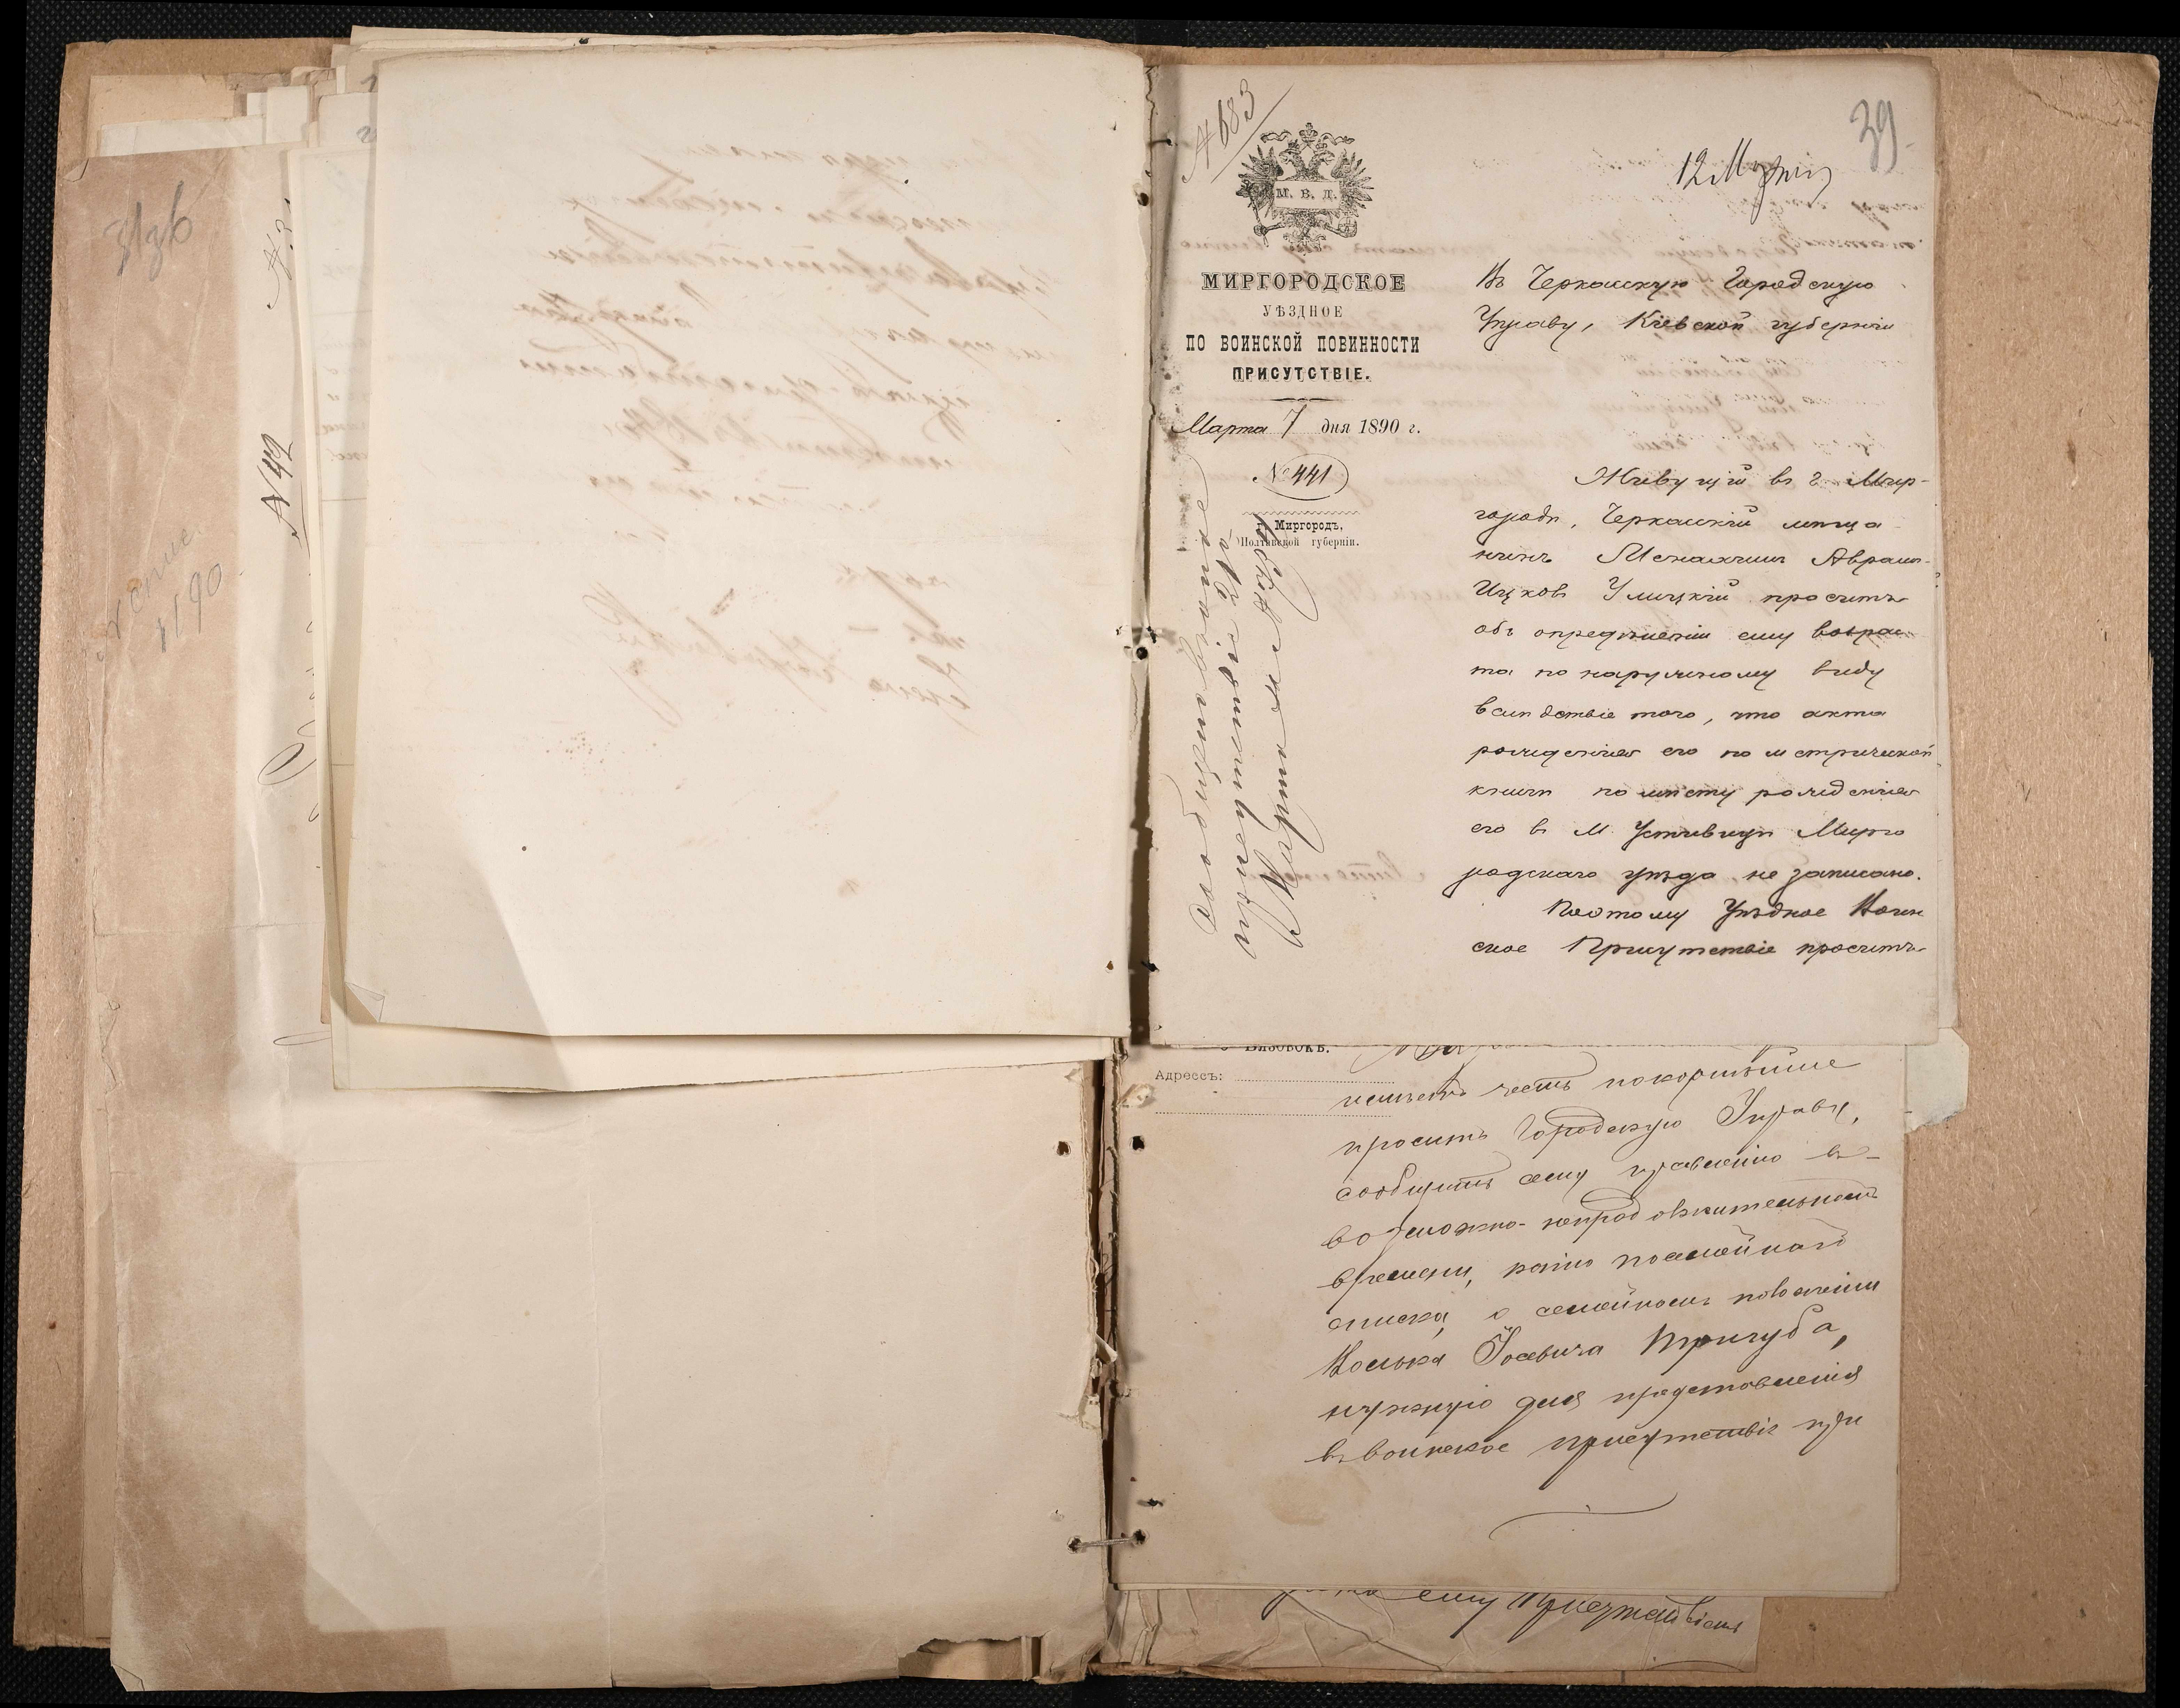 № 683
39
12 Марта
М. В. Д.
МИРГОРОДСКОЕ
УѢЗДНОЕ
ПО ВОИНСКОЙ ПОВИННОСТИ
ПРИСУТСТВІЕ.
Марта 7 дня 1890 г.
№ 441
г. Миргородъ,
Полтавской губерніи.
Въ Черкасскую Городскую
Управу, Кіевской губерніи
Живущій въ г. Мир-
городѣ, Черкасскій мѣща
нинъ Менахимъ Аврам-
Ицковъ Улицкій проситъ
объ опредѣленіи ему возрас-
та по наружному виду
вслѣдствіе того, что акта
рожденія его по метрической
книгѣ по мѣсту рожденія
его въ М. Устивицѣ Мирго
родскаго уѣзда не записано.
Поэтому Уѣздное Воин
ское Присутствіе проситъ
присутствіе
Марта
Адрессъ:
имѣетъ честь покорнѣйше
просить Городскую Управу,
сообщить сему правленію въ
возможно-непродолжительномъ
времени, копію посемейнаго
списка, о семейномъ положеніи
Іосевича Тригуба,
нужную для представленія
въ воинское присутствіе при
ему
№ 42
1890